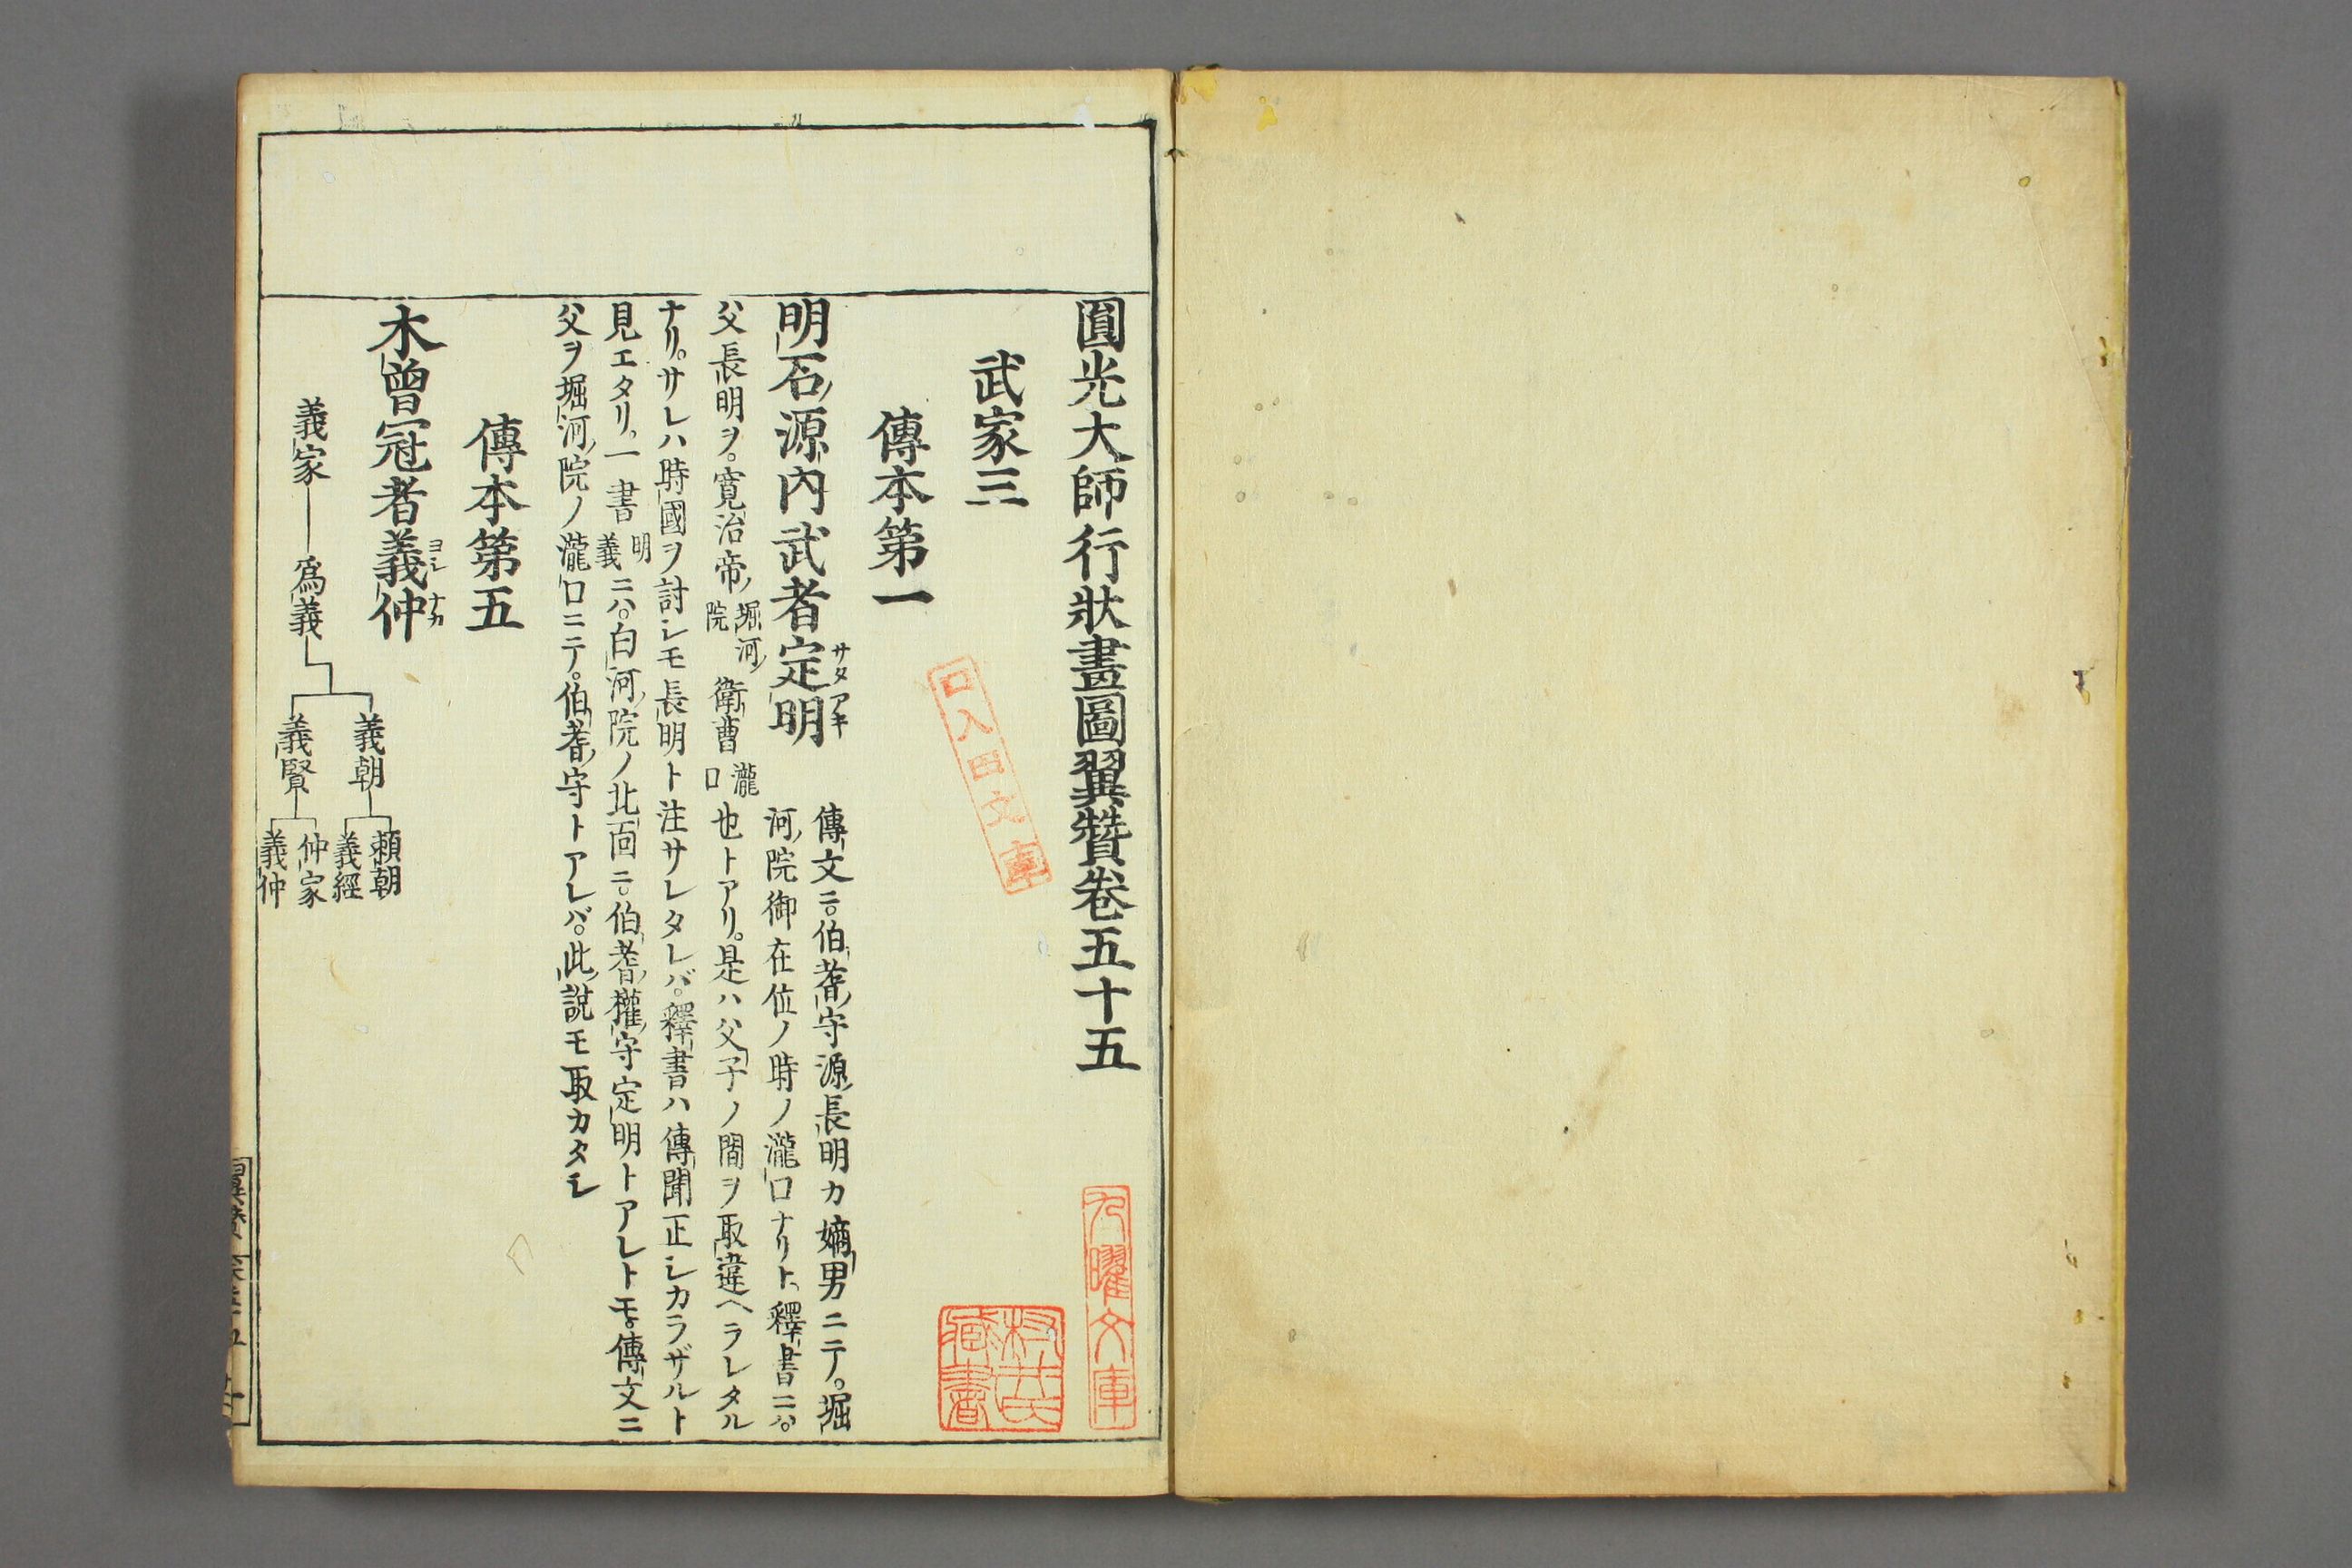 圓光大師行狀畫圖翼贊卷五十五
武家三
傳本第一
明石源内武者定明
サタアキ
傳文ニ。伯耆守源長明カ嫡男ニテ。堀
河院御在位ノ時ノ瀧口ナリト。釋書ニハ。
父長明ヲ。寛治帝堀河院衛曹瀧口也トアリ。是ハ父子ノ間ヲ取違ヘラレタル
ナリ。サレハ時國ヲ討シモ長明ト注サレタレバ。釋書ハ傳聞正シカラザルト
見エタリ。一書明義ニハ。白河院ノ北面ニ。伯耆權守定明トアレトモ。傳文ニ
父ヲ堀河院ノ瀧口ニテ。伯耆守トアレバ。此說モ取カタシ
傳本第五
木曾冠者義仲
ヨシナカ
義家
爲義
義朝
義賢
賴朝
義經
仲家
義仲
九曜文庫
翼贊